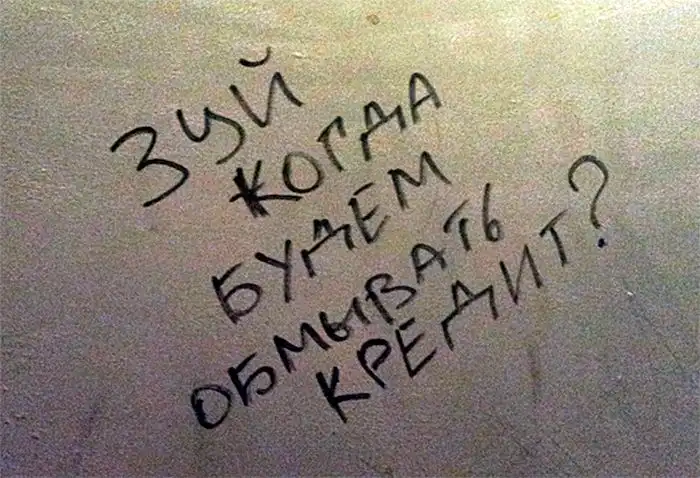 ЗУЙ
КОГДА
БУДЕМ
ОБМЫВАТЬ
КРЕДИТ?